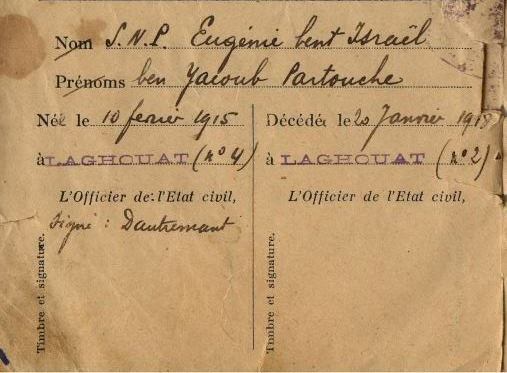 Nom S.N.P. Eugénie bent Israël
Prénoms ben Yacoub Partouche
Née le 10 février 1915
à LAGHOUAT (n° 4)
L'Officier de l'Etat civil,
Signé : Dautremant
Timbre et signature.
Décédé le 20 Janvier 1918
à LAGHOUAT (n° 2)
L'Officier de l'Etat civil,
Timbre et signature.